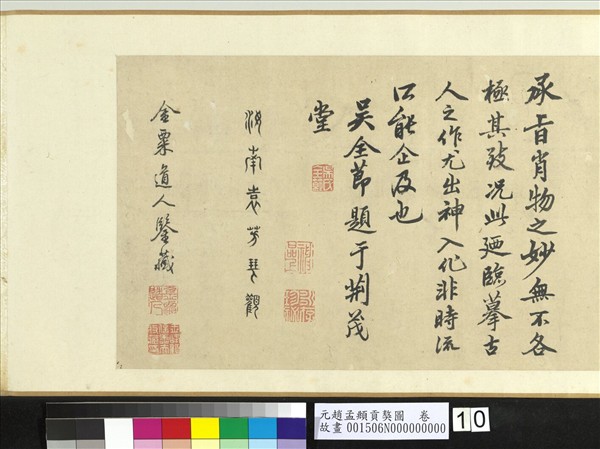 承旨肖物之妙無不各
極其致况此廼臨摹古
人之作尤出神入化非時流
所能企及也
吳全節題于荆茂
堂
汝南袁芳㺯觀
金粟道人鑒藏
元趙孟頫貢獒圖 卷
故畫 001506N000000000
10